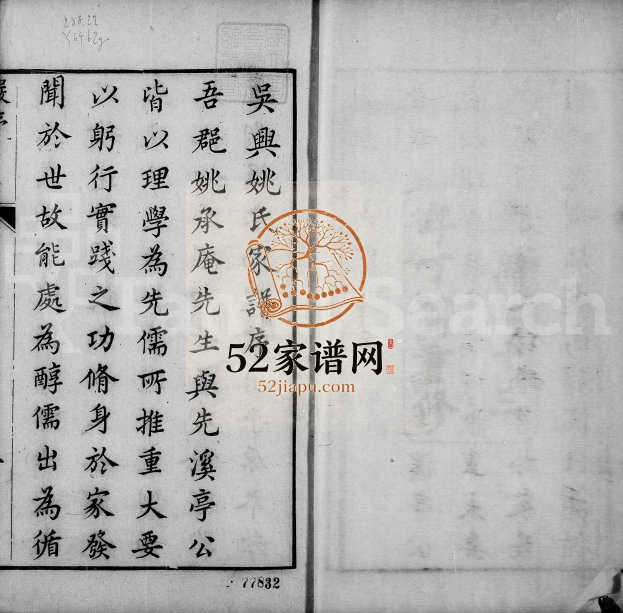 吳興姚氏家譜序
吾郡姚承庵先生與先溪亭公
皆以理學為先儒所推重大要
以躬行實踐之功脩身於家發
聞於世故能處為醇儒出為循
288.22
Y6462g
Search
52家谱网
52jiapu.com
77832